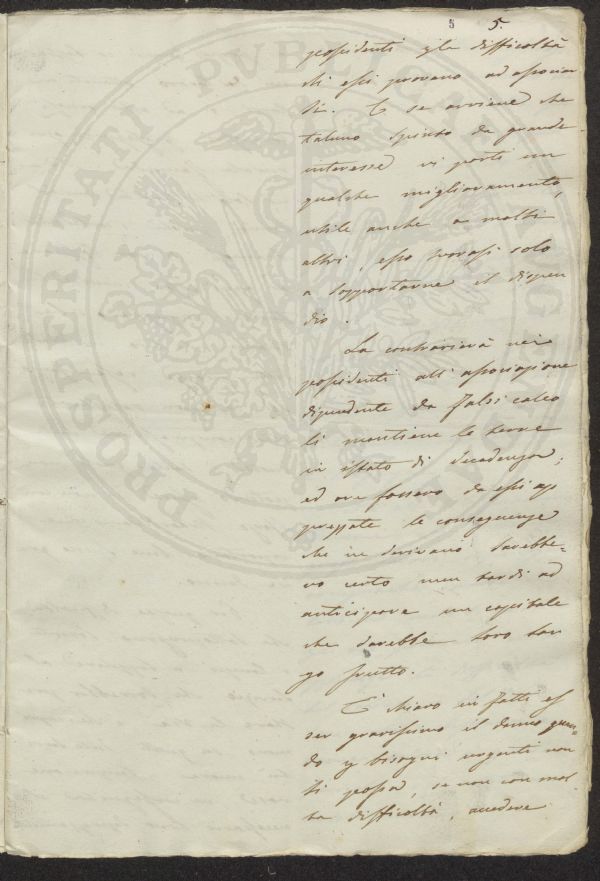 5 5.
possidenti p la difficoltà
ch essi provano ad associar
si. E se avviene che
taluno spinto da grande
interesse vi porti un
qualche miglioramento,
utile anche a molti
altri, esso trovasi solo
a sopportarne il dispen
dio.
La contrarietà nei
possidenti all' associazione
dipendente da falsi calco
li mantiene le terre
in istato di decadenza;
ed ove fossero da essi ap
prezzate le conseguenze
che ne derivano sarebbe-
ro certo men tardi ad
anticipare un capitale
che darebbe loro lar
go frutto.
E' chiaro in fatti es
ser gravissimo il danno quan
do p bisogni urgenti non
si possa, se non con mol
ta difficoltà, accedere
PROSPERITATI PVBLICAE AVGENDAE